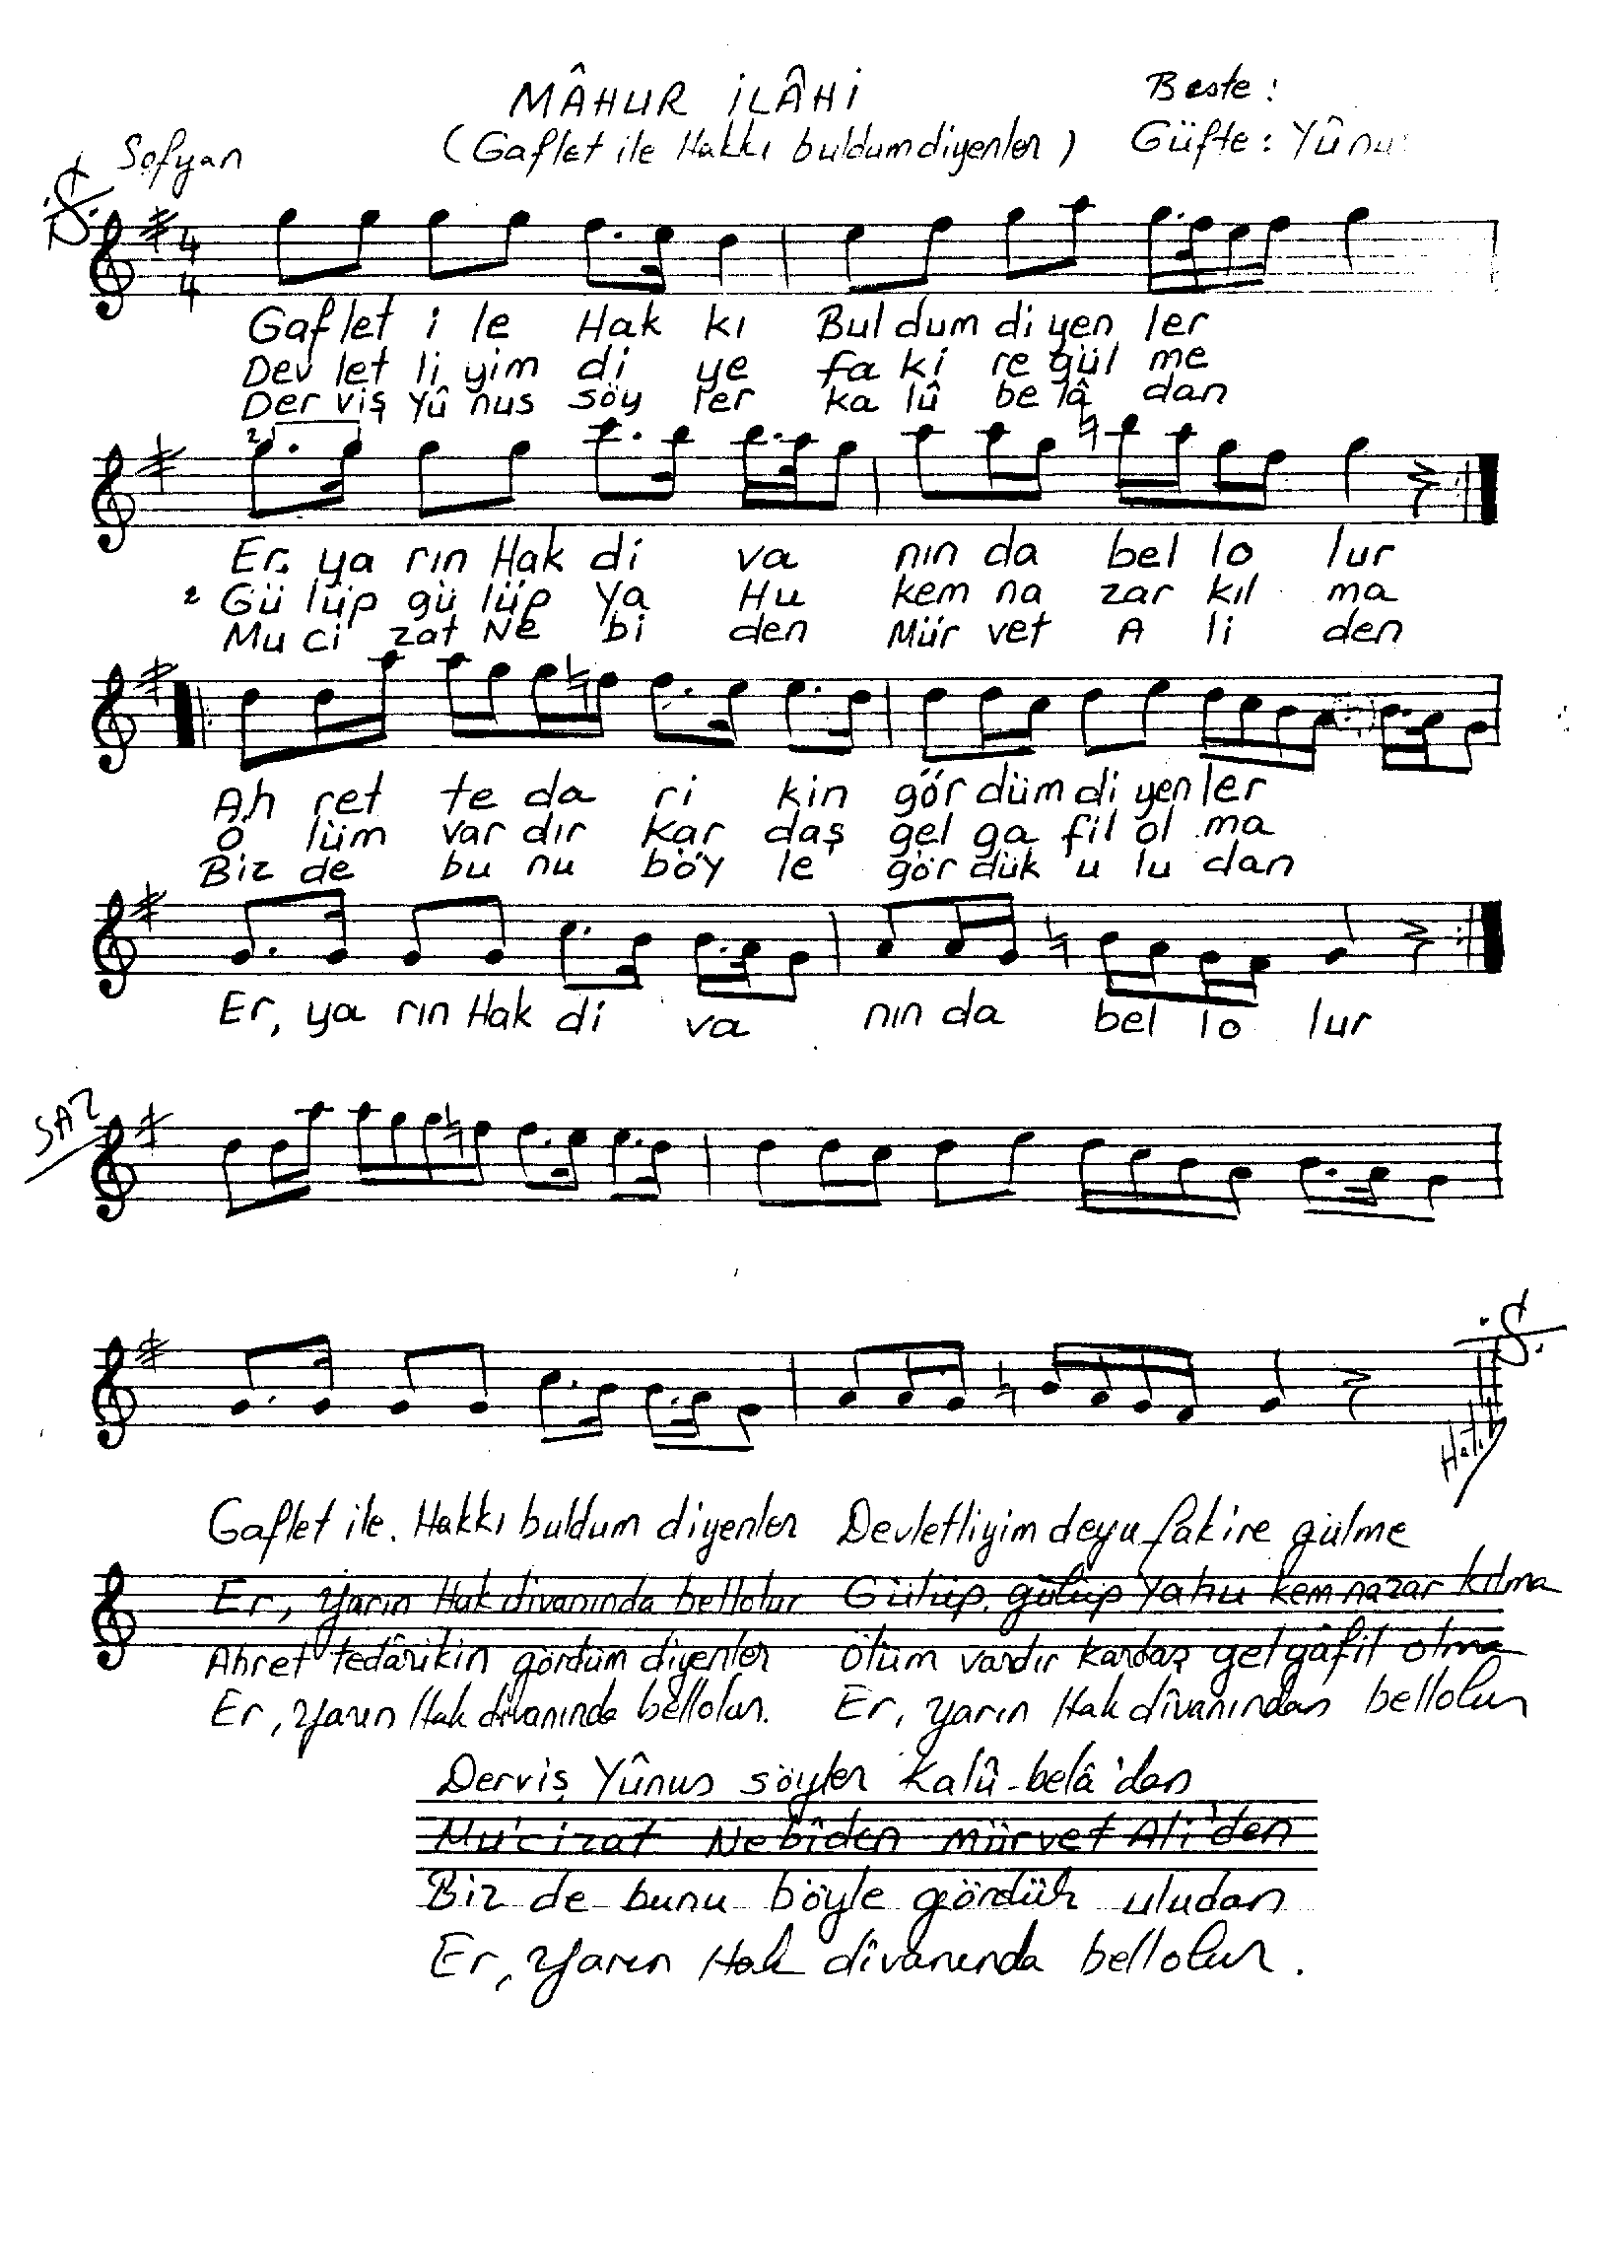 MÂHUR İLÂHİ
Beste :
(Gaflet ile Hakkı buldum diyenler)
Güfte : Yûnus
Sofyan
4
4
Gaf let i le Hak kı Bul dum di yen ler
Dev let li yim di ye fa ki re gül me
Der viş Yû nus söy ler ka lû be lâ dan
2
Er, ya rın Hak di va nın da bel lo lur
2 Gü lüp gü lüp Ya Hu kem na zar kıl ma
Mu ci zat Ne bi den Mür vet A li den
Ah ret te da ri kin gör düm di yen ler
Ö lüm var dır kar daş gel ga fil ol ma
Biz de bu nu böy le gör dük u lu dan
Er, ya rın Hak di va nın da bel lo lur
SAZ
Hatib
Gaflet ile. Hakkı buldum diyenler Devletliyim deyu fakire gülme
Er, yarın Hak divanında bellolur Gülüp, gülüp Yahu kem nazar kılma
Ahret tedârikin gördüm diyenler Ölüm vardır kardaş gel gâfil olma
Er, yarın Hak divanında bellolur. Er, yarın Hak dîvanından bellolur
Derviş Yûnus söyler Kalû-belâ'dan
Mu'cizat Nebîden mürvet Ali'den
Biz de bunu böyle gördük uludan
Er, yarın Hak dîvanında bellolur.